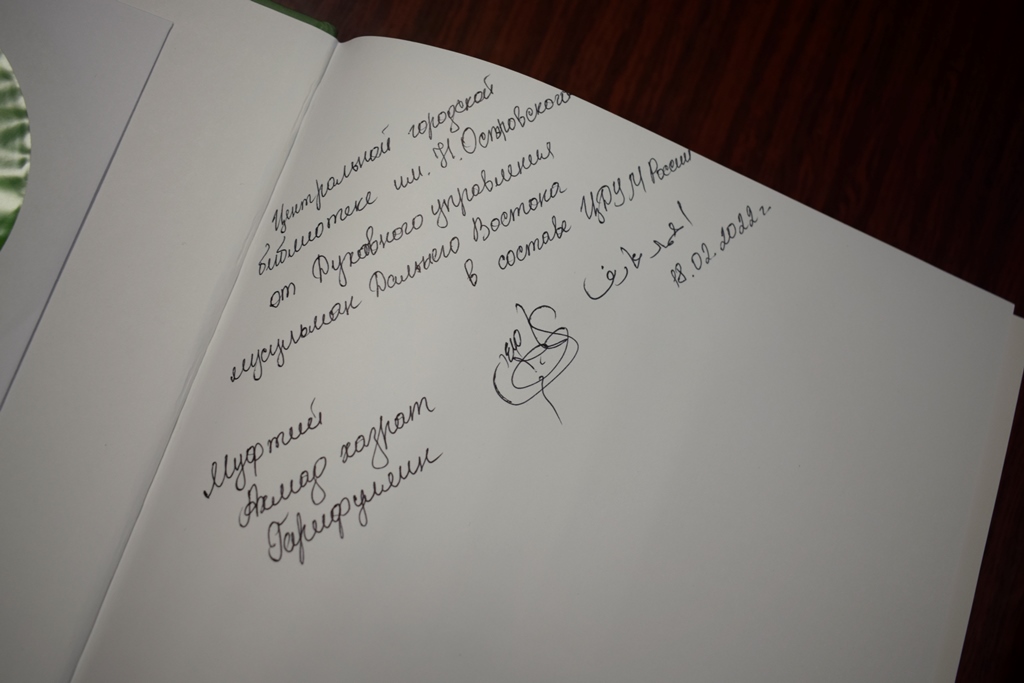 Центральной городской
библиотеке им. Н. Островского
от Духовного управления
мусульман Дальнего Востока
в составе ЦДУМ России
Муфтий
Ахмад хазрат
Гарифуллин
18.02.2022 г.